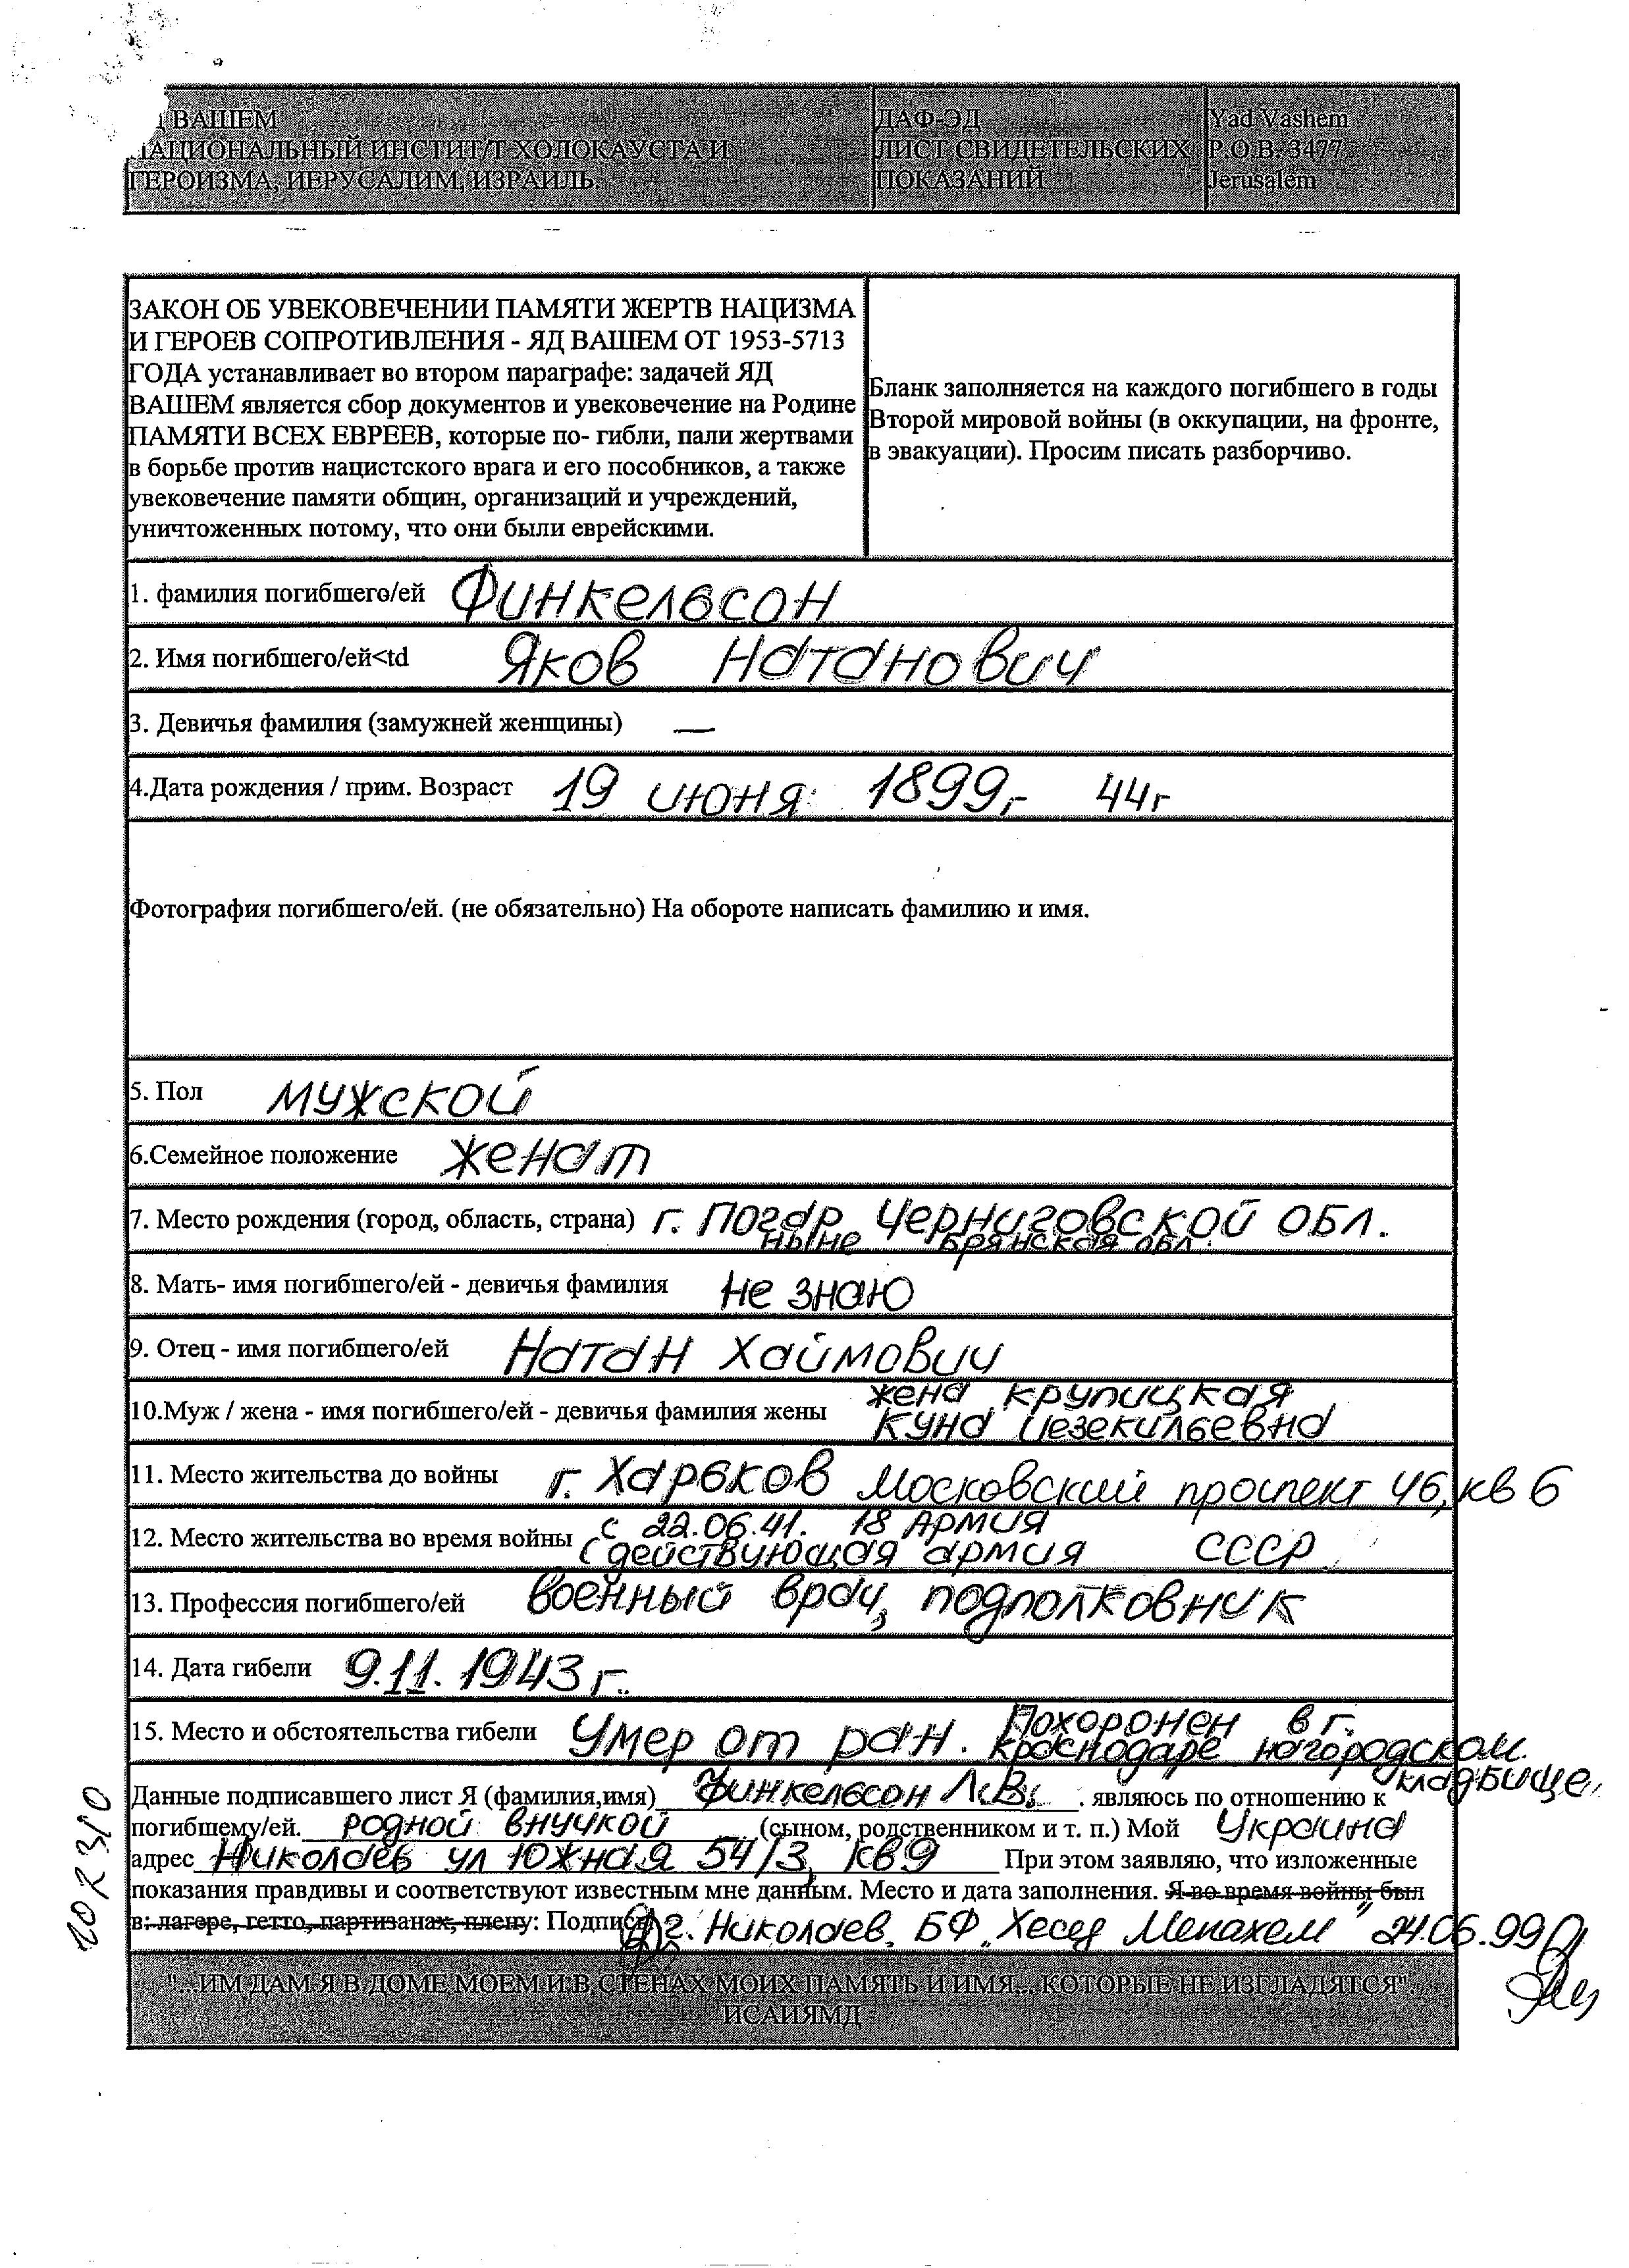 Д ВАШЕМ
НАЦИОНАЛЬНЫЙ ИНСТИТ/Т ХОЛОКАУСТА И
ГЕРОИЗМА, ИЕРУСАЛИМ, ИЗРАИЛЬ.
ДАФ-ЭД
ЛИСТ СВИДЕТЕЛЬСКИХ
ПОКАЗАНИЙ
Yad Vashem
P.O.B. 3477
Jerusalem
ЗАКОН ОБ УВЕКОВЕЧЕНИИ ПАМЯТИ ЖЕРТВ НАЦИЗМА
И ГЕРОЕВ СОПРОТИВЛЕНИЯ - ЯД ВАШЕМ ОТ 1953-5713
ГОДА устанавливает во втором параграфе: задачей ЯД
ВАШЕМ является сбор документов и увековечение на Родине
ПАМЯТИ ВСЕХ ЕВРЕЕВ, которые по- гибли, пали жертвами
в борьбе против нацистского врага и его пособников, а также
увековечение памяти общин, организаций и учреждений,
уничтоженных потому, что они были еврейскими.
Бланк заполняется на каждого погибшего в годы
Второй мировой войны (в оккупации, на фронте,
в эвакуации). Просим писать разборчиво.
1. фамилия погибшего/ей Финкельсон
2. Имя погибшего/ей<td Яков Натанович
3. Девичья фамилия (замужней женщины) —
4.Дата рождения / прим. Возраст 19 июня 1899г 44г
Фотография погибшего/ей. (не обязательно) На обороте написать фамилию и имя.
5. Пол мужской
6.Семейное положение женат
7. Место рождения (город, область, страна) г. Погар Черниговской обл.
ныне Брянская обл.
8. Мать- имя погибшего/ей - девичья фамилия не знаю
9. Отец - имя погибшего/ей Натан Хаймович
10.Муж / жена - имя погибшего/ей - девичья фамилия жены жена Крупицкая
Куна Иезекильевна
11. Место жительства до войны г. Харьков Московский проспект 46, кв 6
12. Место жительства во время войны с 22.06.41. 18 Армия
(действующая армия СССР
13. Профессия погибшего/ей военный врач, подполковник
14. Дата гибели 9.11.1943 г.
15. Место и обстоятельства гибели Умер от ран. Похоронен в г.
Краснодаре на городском
кладбище.
Данные подписавшего лист Я (фамилия,имя) Финкельсон Л.В. . являюсь по отношению к
погибшему/ей. родной внучкой (сыном, родственником и т. п.) Мой Украина
адрес Николаев ул Южная 54/3, кв9 При этом заявляю, что изложенные
показания правдивы и соответствуют известным мне данным. Место и дата заполнения. Я во время войны был
в: лагере, гетто, партизанах, плену: Подпись г. Николаев, БФ „Хесед Менахем" 24.06.99
"...ИМ ДАМ Я В ДОМЕ МОЕМ И В СТЕНАХ МОИХ ПАМЯТЬ И ИМЯ... КОТОРЫЕ НЕ ИЗГЛАДЯТСЯ".
ИСАИЯМД